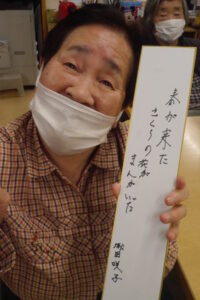 春が来た
さくらの花が
まんかいだ
咲子